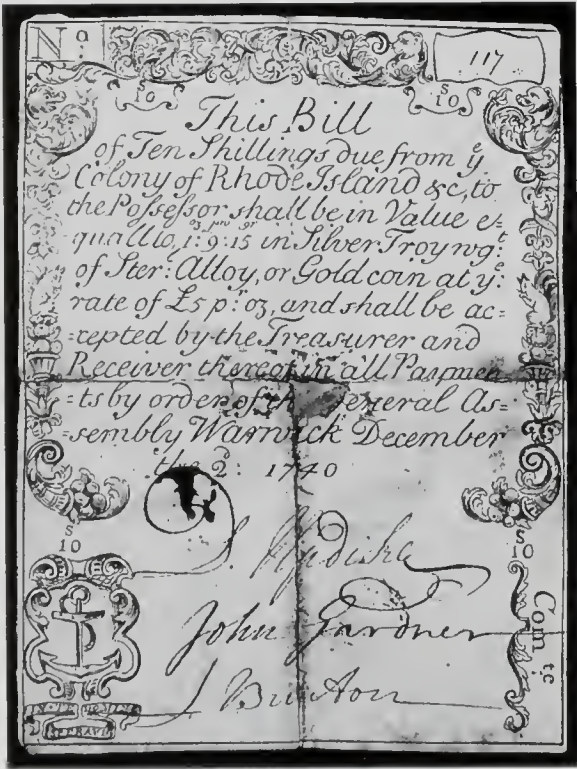 No: 117
s
10
s
10
This Bill
of Ten Shillings due from ye
Colony of Rhode Island &c, to
the Possessor shall be in Value e=
qual to, oz 1: pw 9: gr 15 in Silver Troy wgt.
of Ster: Alloy, or Gold coin at ye:
rate of £5 pr. oz, and shall be ac=
=cepted by the Treasurer and
Receiver thereof in all Paymen
=ts by order of the General As=
=sembly Warwick December
the 2d: 1740
s
10
s
10
John Gardner
Com tee